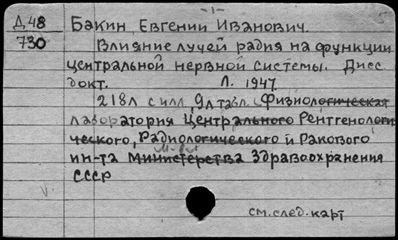 - 1 -
Д.48 Бакин, Евгений Иванович.
730 Влияние лучей радия на функции
центральной нервной системы. Дисс
докт. Л. 1947.
218л с илл, 9л табл. (Физиологическая
лаборатория Центрального Рентгенологи-
ческого, Радиологического и Ракового
ин-та Министерства Здравоохранения
СССР
см.след.карт